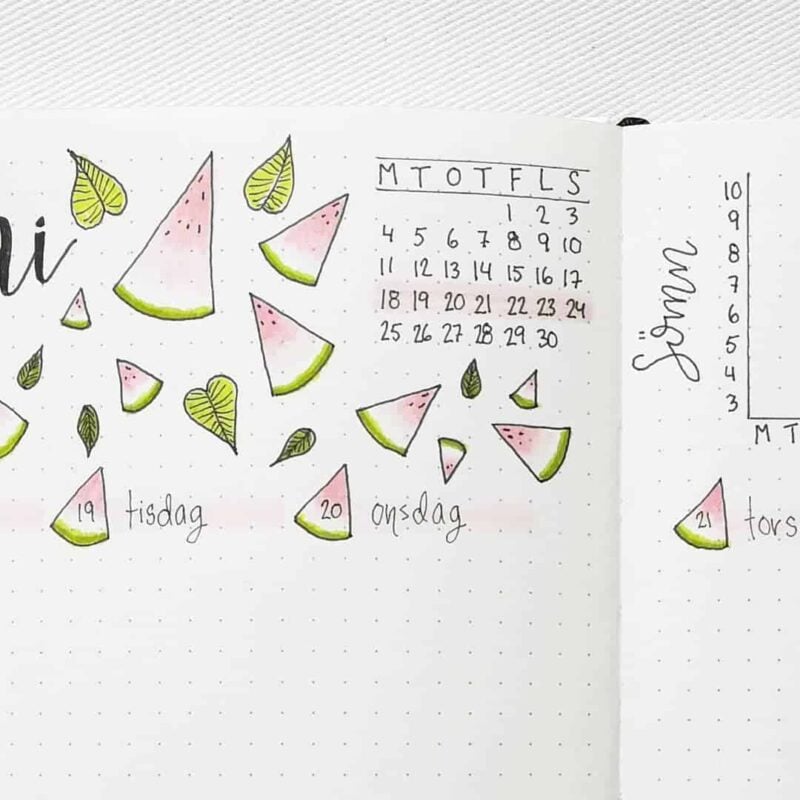 ni
M T O T F L S
1 2 3
4 5 6 7 8 9 10
11 12 13 14 15 16 17
18 19 20 21 22 23 24
25 26 27 28 29 30
19 tisdag
20 onsdag
Sömn
10
9
8
7
6
5
4
3
M T
21 tors